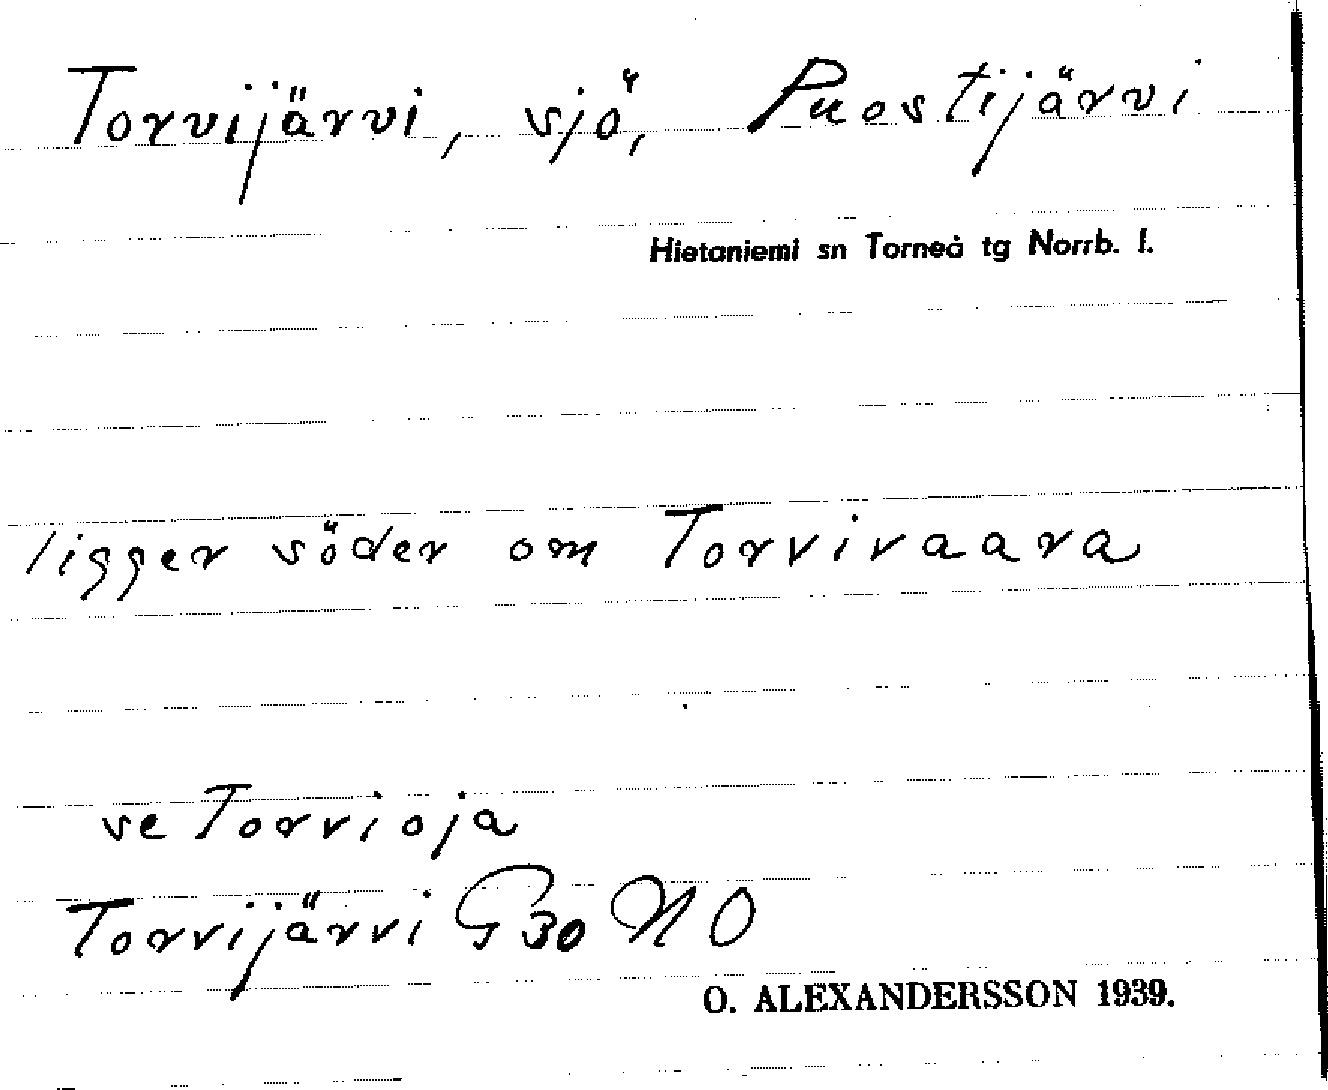 Torvijärvi, sjö, Puostijärvi
Hietaniemi sn Torneå tg Norrb. l.
ligger söder om Torvivaara
se Torvioja
Torvijärvi G 30 NO
O. ALEXANDERSSON 1939.